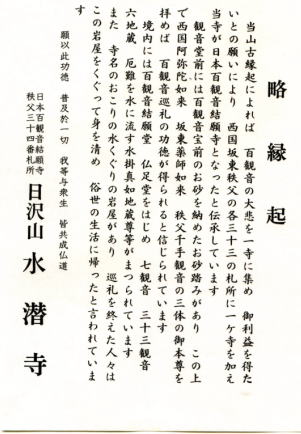 略縁起
当山古縁起によれば 百観音の大悲を一寺に集め 御利益を得た
いとの願いにより 西国坂東秩父の各三十三の札所に一ケ寺を加え
当寺が日本百観音結願寺となったと伝承しています
観音堂前には百観音宝前のお砂を納めたお砂踏みがあり この上
で西国阿弥陀如来 坂東薬師如来 秩父千手観音の三体の御本尊を
拝めば 百観音巡礼の功徳が得られると信じられています
境内には百観音結願堂 仏足堂をはじめ 七観音 三十三観音
六地蔵 厄難を水に流す水掛真如地蔵尊等がまつられています
また 寺名のおこりの水くぐりの岩屋があり 巡礼を終えた人々は
この岩屋をくぐって身を清め 俗世の生活に帰ったと言われていま
す
願以此功徳 普及於一切 我等与衆生 皆共成仏道
日本百観音結願寺
秩父三十四番札所
日沢山 水潜寺